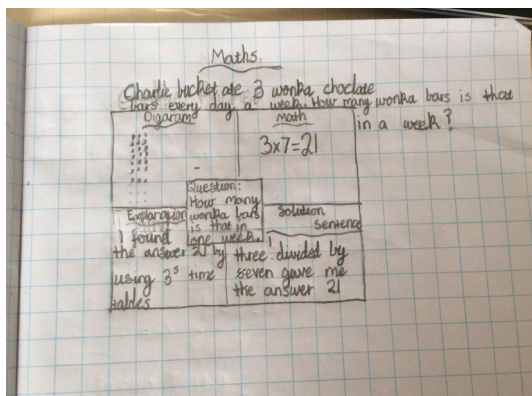 Maths
Charlie bucket ate 3 wonka choclate
bars every day a week. How many wonka bars is that
in a week?
Digaram
Math
3x7=21
Question:
How many
wonka bars
is that in
one week.
Explanation
I found
the answer 21 by
using 3s time
tables
Solution
sentence
three divided by
seven gave me
the answer 21